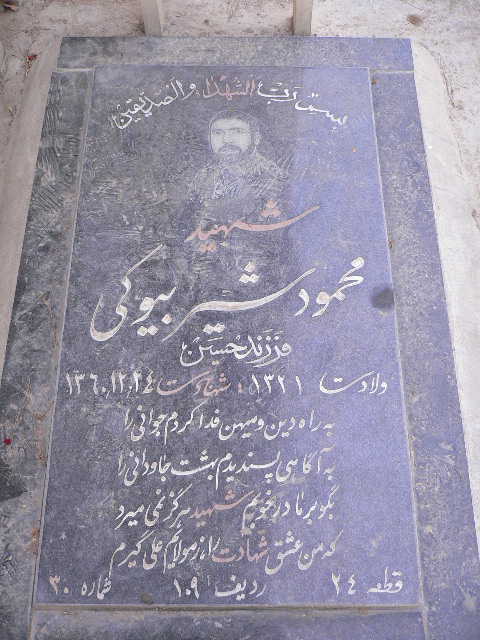 بسم رب الشهدا والصدیقین
شهید
محمود شیر بیوکی
فرزند حسین
ولادت ۱۳۲۱ : شهادت ۱۳۶۰,۱۲,۲۴
به راه دین و میهن فدا کردم جوانی را
به آگاهی پسندیدم بهشت جاودانی را
بگو بر مادر خوبم شهید هرگز نمی میرد
که من عشق شهادت را، ز مولایم علی گیرم
قطعه ۲۴ ردیف ۱۰۹ شماره ۳۰